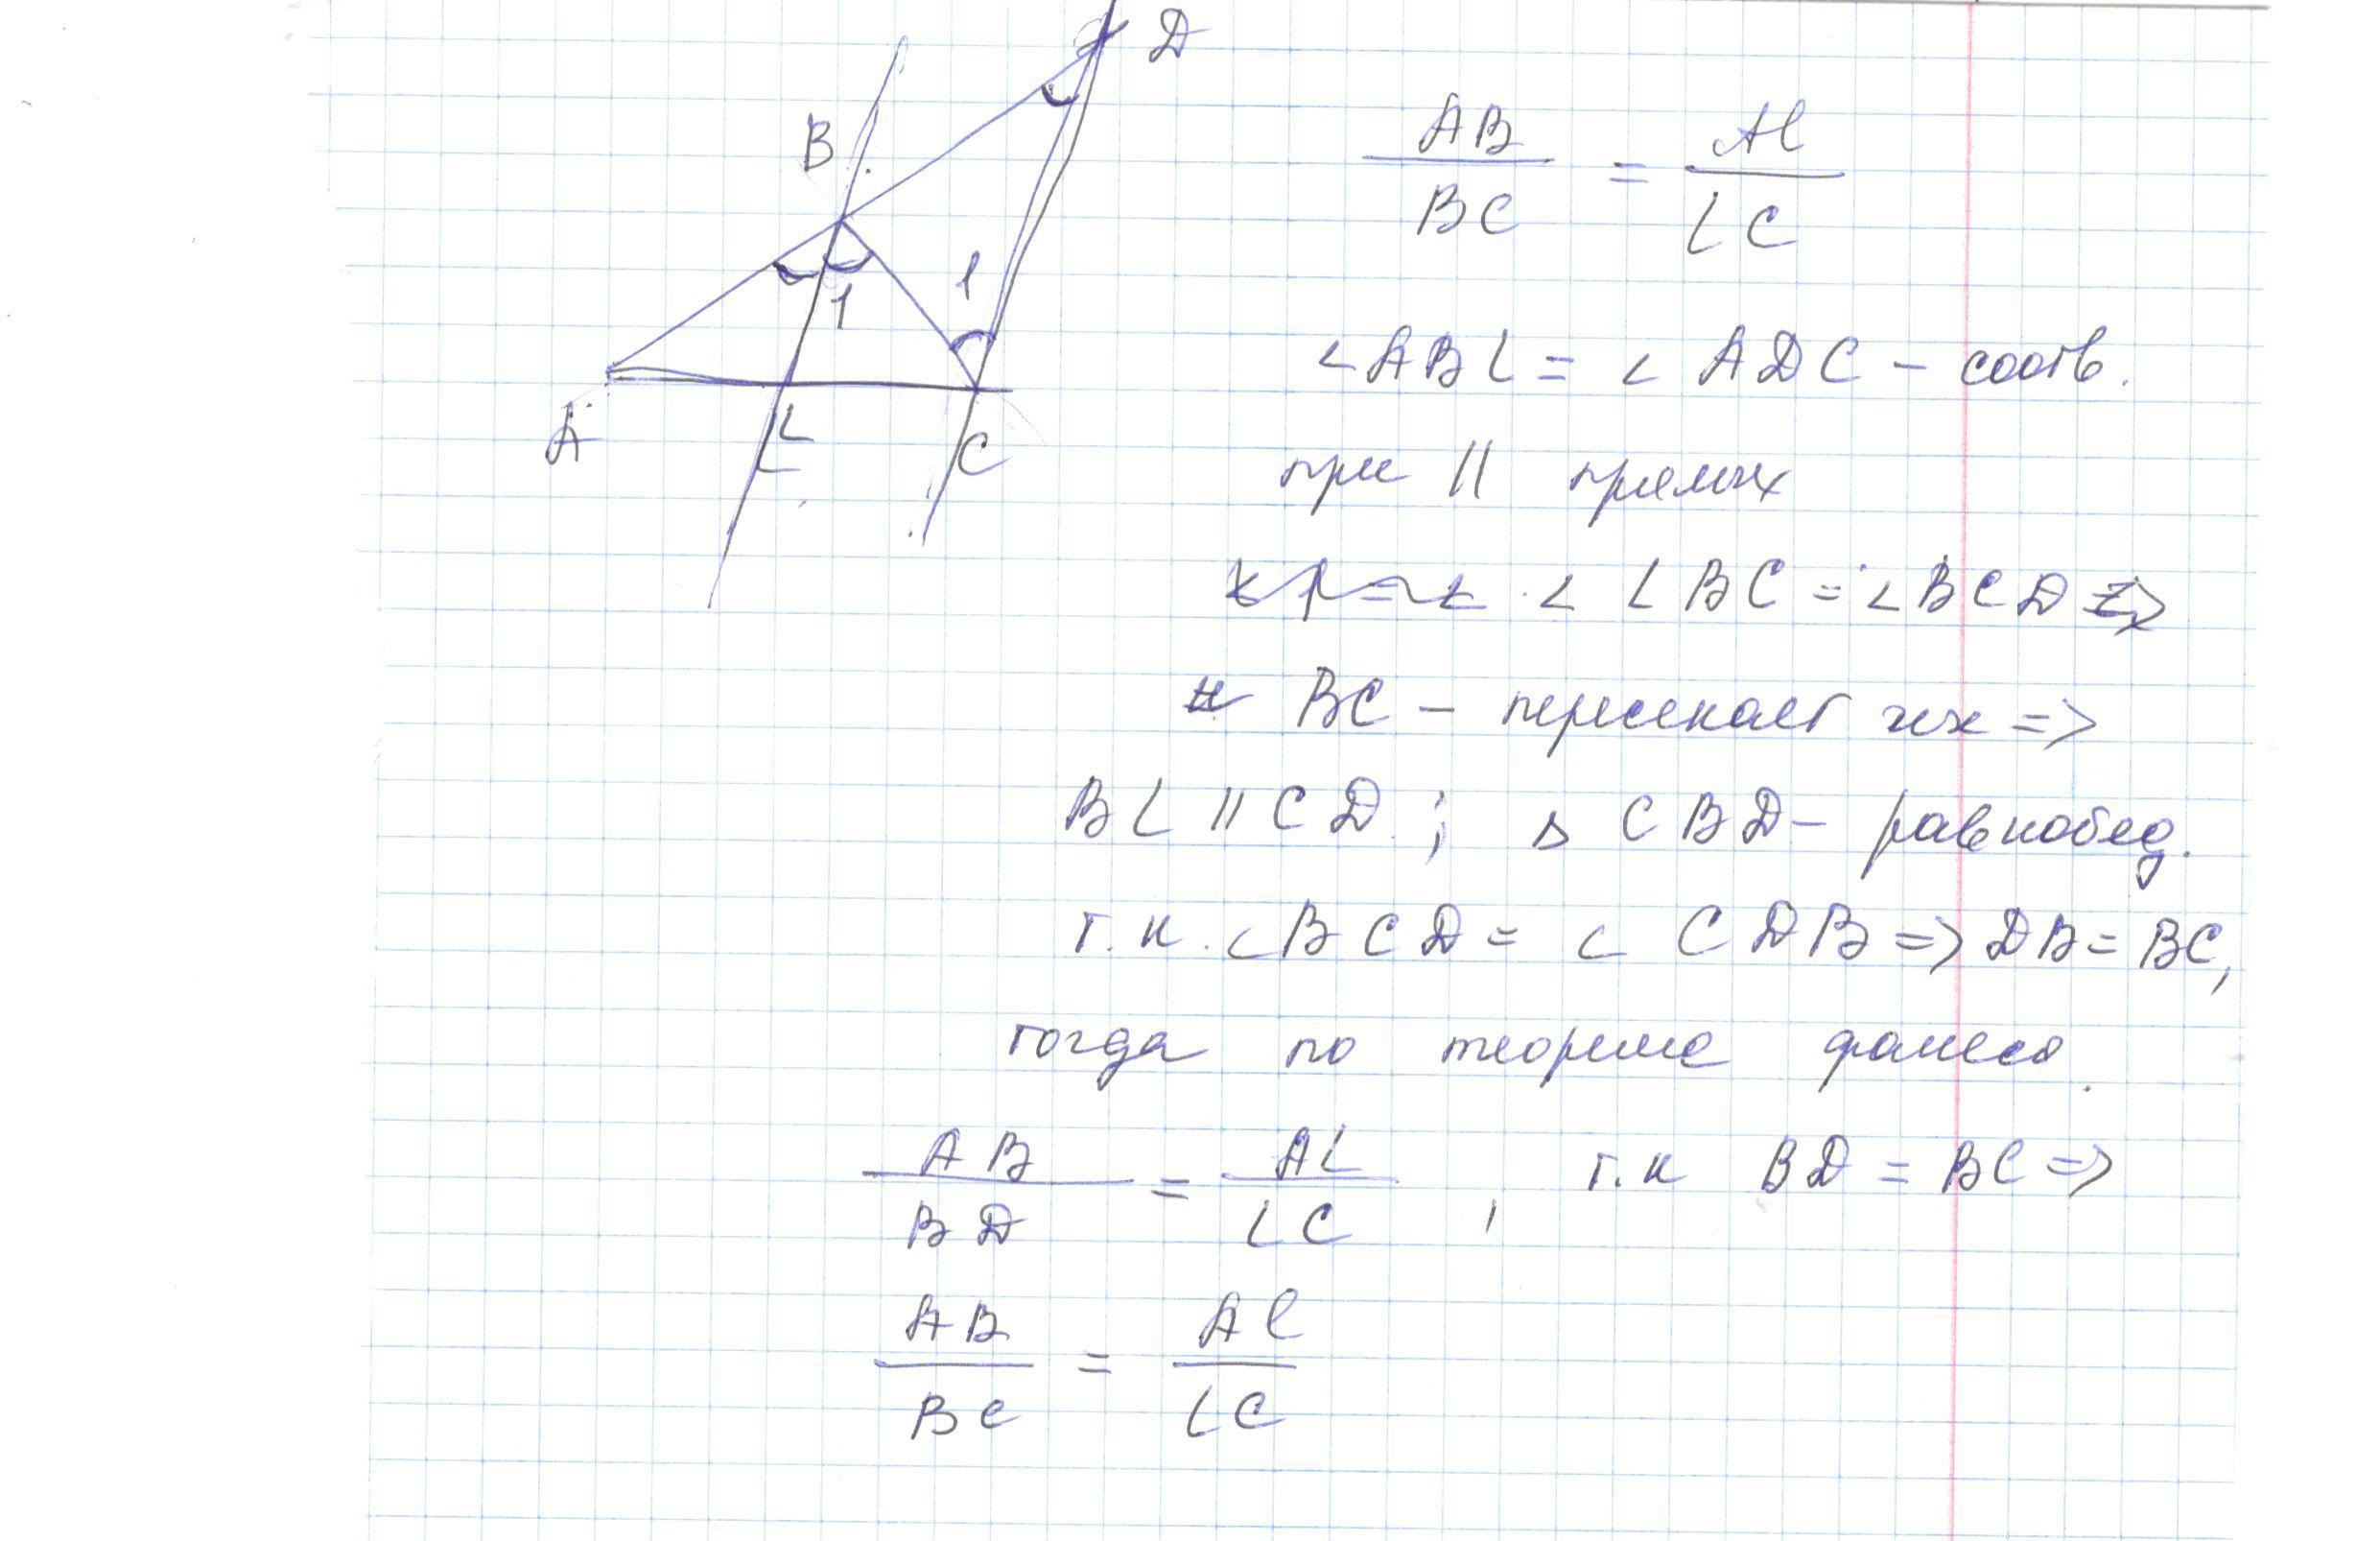 D
B
1
1
A
L
L
C
AB / BC = Al / LC
∠ABL = ∠ADC – соотв.
при || прямых
∠LBC = ∠BCD
и BC – пересекает их =>
BL || CD ; △ CBD – равнобед.
т.к. ∠BCD = ∠CDB => DB = BC,
тогда по теореме фалеса.
AB / BD = AL / LC , т.к BD = BC =>
AB / BC = Al / LC